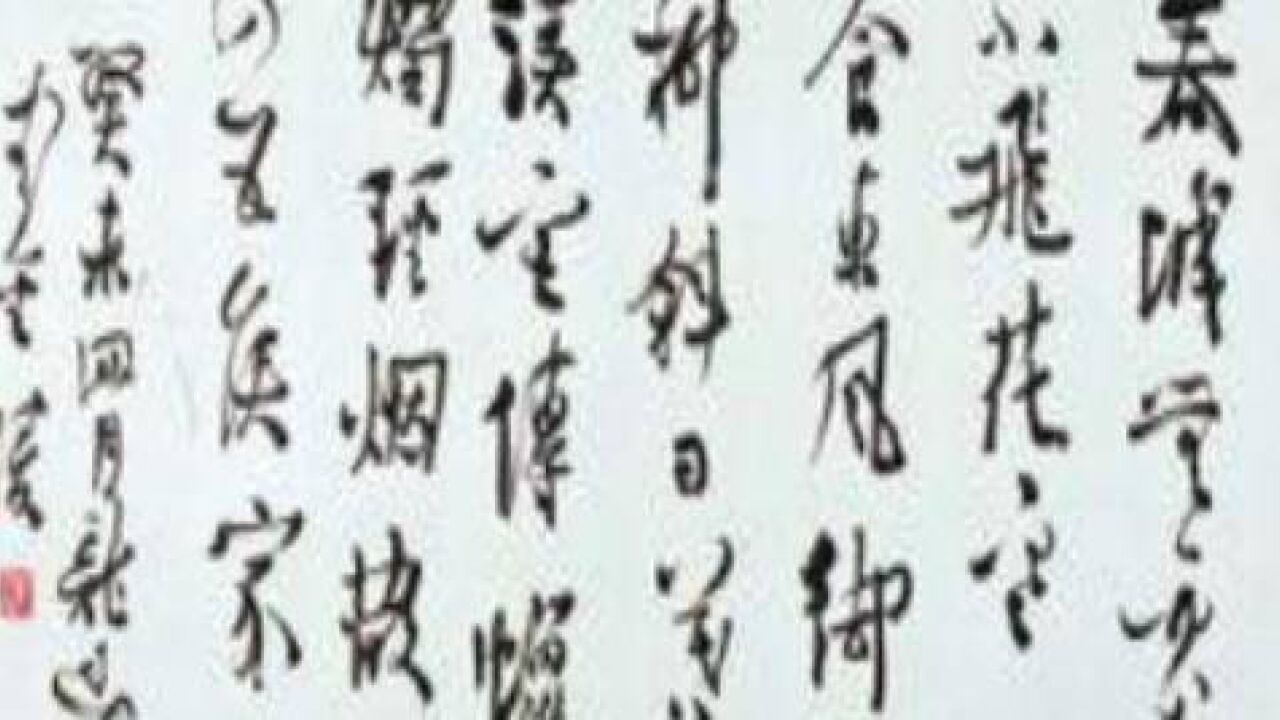 春城無處
不飛花寒
食東風御
柳斜日暮
漢宮傳蠟
燭輕烟散
入五侯家
癸未四月龍